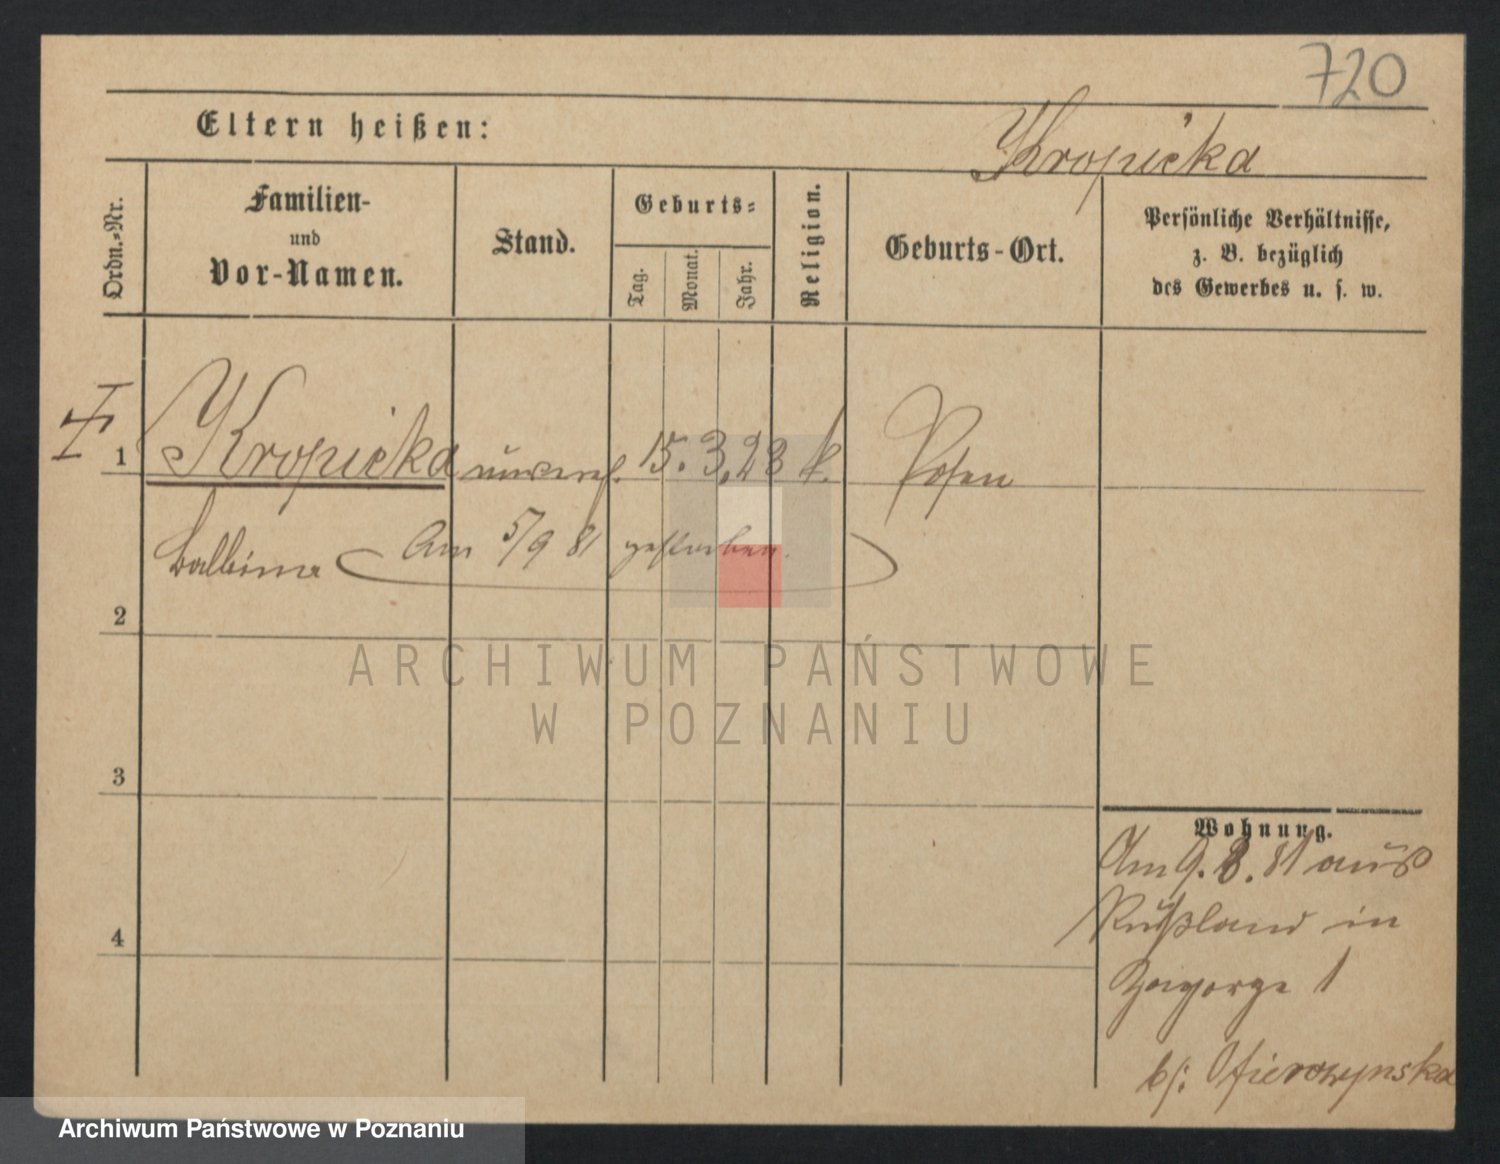 720
Eltern heißen:
Kropićka
Ordn.-Nr.
Familien-
und
Vor-Namen.
Stand.
Geburts-
Tag.
Monat.
Jahr.
Religion.
Geburts-Ort.
Persönliche Verhältnisse,
z. B. bezüglich
des Gewerbes u. s. w.
1 Kropićka 15. 3. 28 k. Posen
Balbina Am 5/9 81 gestorben.
2
3
4
Wohnung.
Am 9. 8. 81 aus
Rußland in
Zagorze 1
b/:
ARCHIWUM PAŃSTWOWE
W POZNANIU
Archiwum Państwowe w Poznaniu